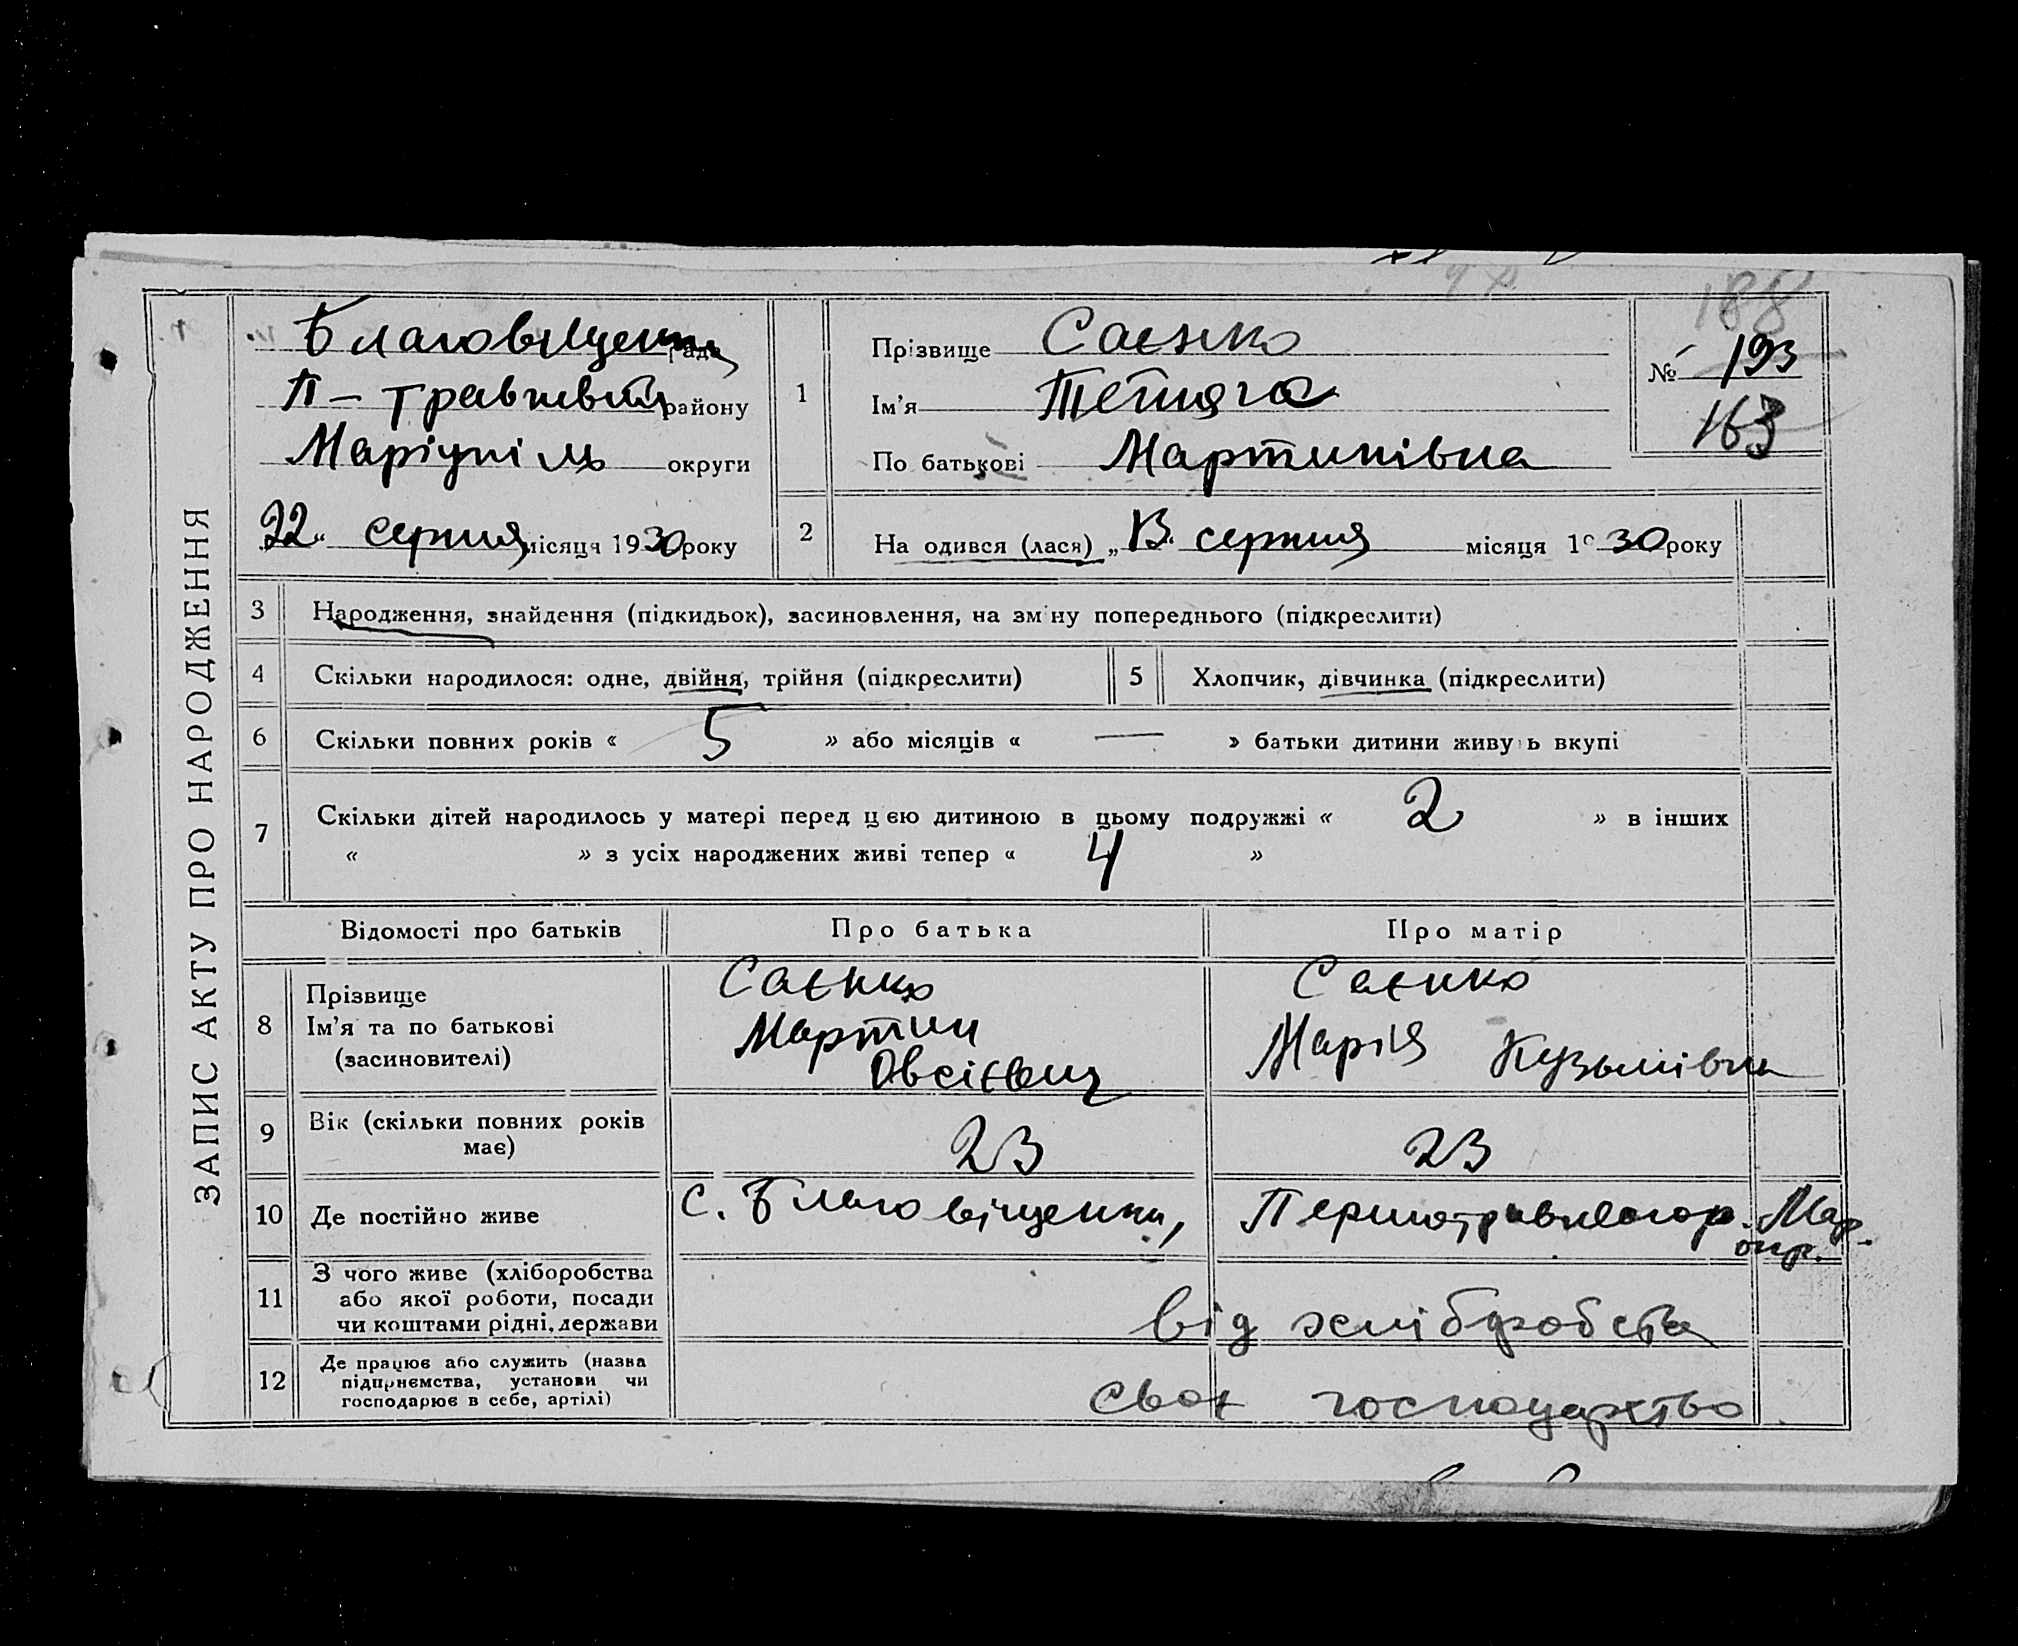 ЗАПИС АКТУ ПРО НАРОДЖЕННЯ
188
№ 193
163
Благовіщенка рада
П-травневий району
Маріупіль округи
22 серпня місяця 1930 року
1
Прізвище Саєнко
Ім'я Тетяна
По батькові Мартинівна
2
На одився (лася) „13" серпня місяця 1930 року
3 Народження, знайдення (підкидьок), засиновлення, на зміну попереднього (підкреслити)
4 Скільки народилося: одне, двійня, трійня (підкреслити)
5 Хлопчик, дівчинка (підкреслити)
6 Скільки повних років « 5 » або місяців « — » батьки дитини живуть вкупі
7 Скільки дітей народилось у матері перед цією дитиною в цьому подружжі « 2 » в інших
« » з усіх народжених живі тепер « 4 »
Відомості про батьків Про батька Про матір
8 Прізвище
Ім'я та по батькові
(засиновителі)
Саєнко
Мартин
Овсієвич
Саєнко
Марія Кузьмівна
9 Вік (скільки повних років
має)
23 23
10 Де постійно живе с. Благовіщенка, Першотравневого р. Мар.
окр.
11 З чого живе (хліборобства
або якої роботи, посади
чи коштами рідні, держави
від хліборобства
12 Де працює або служить (назва
підприємства, установи чи
господарює в себе, артілі)
своє господарство